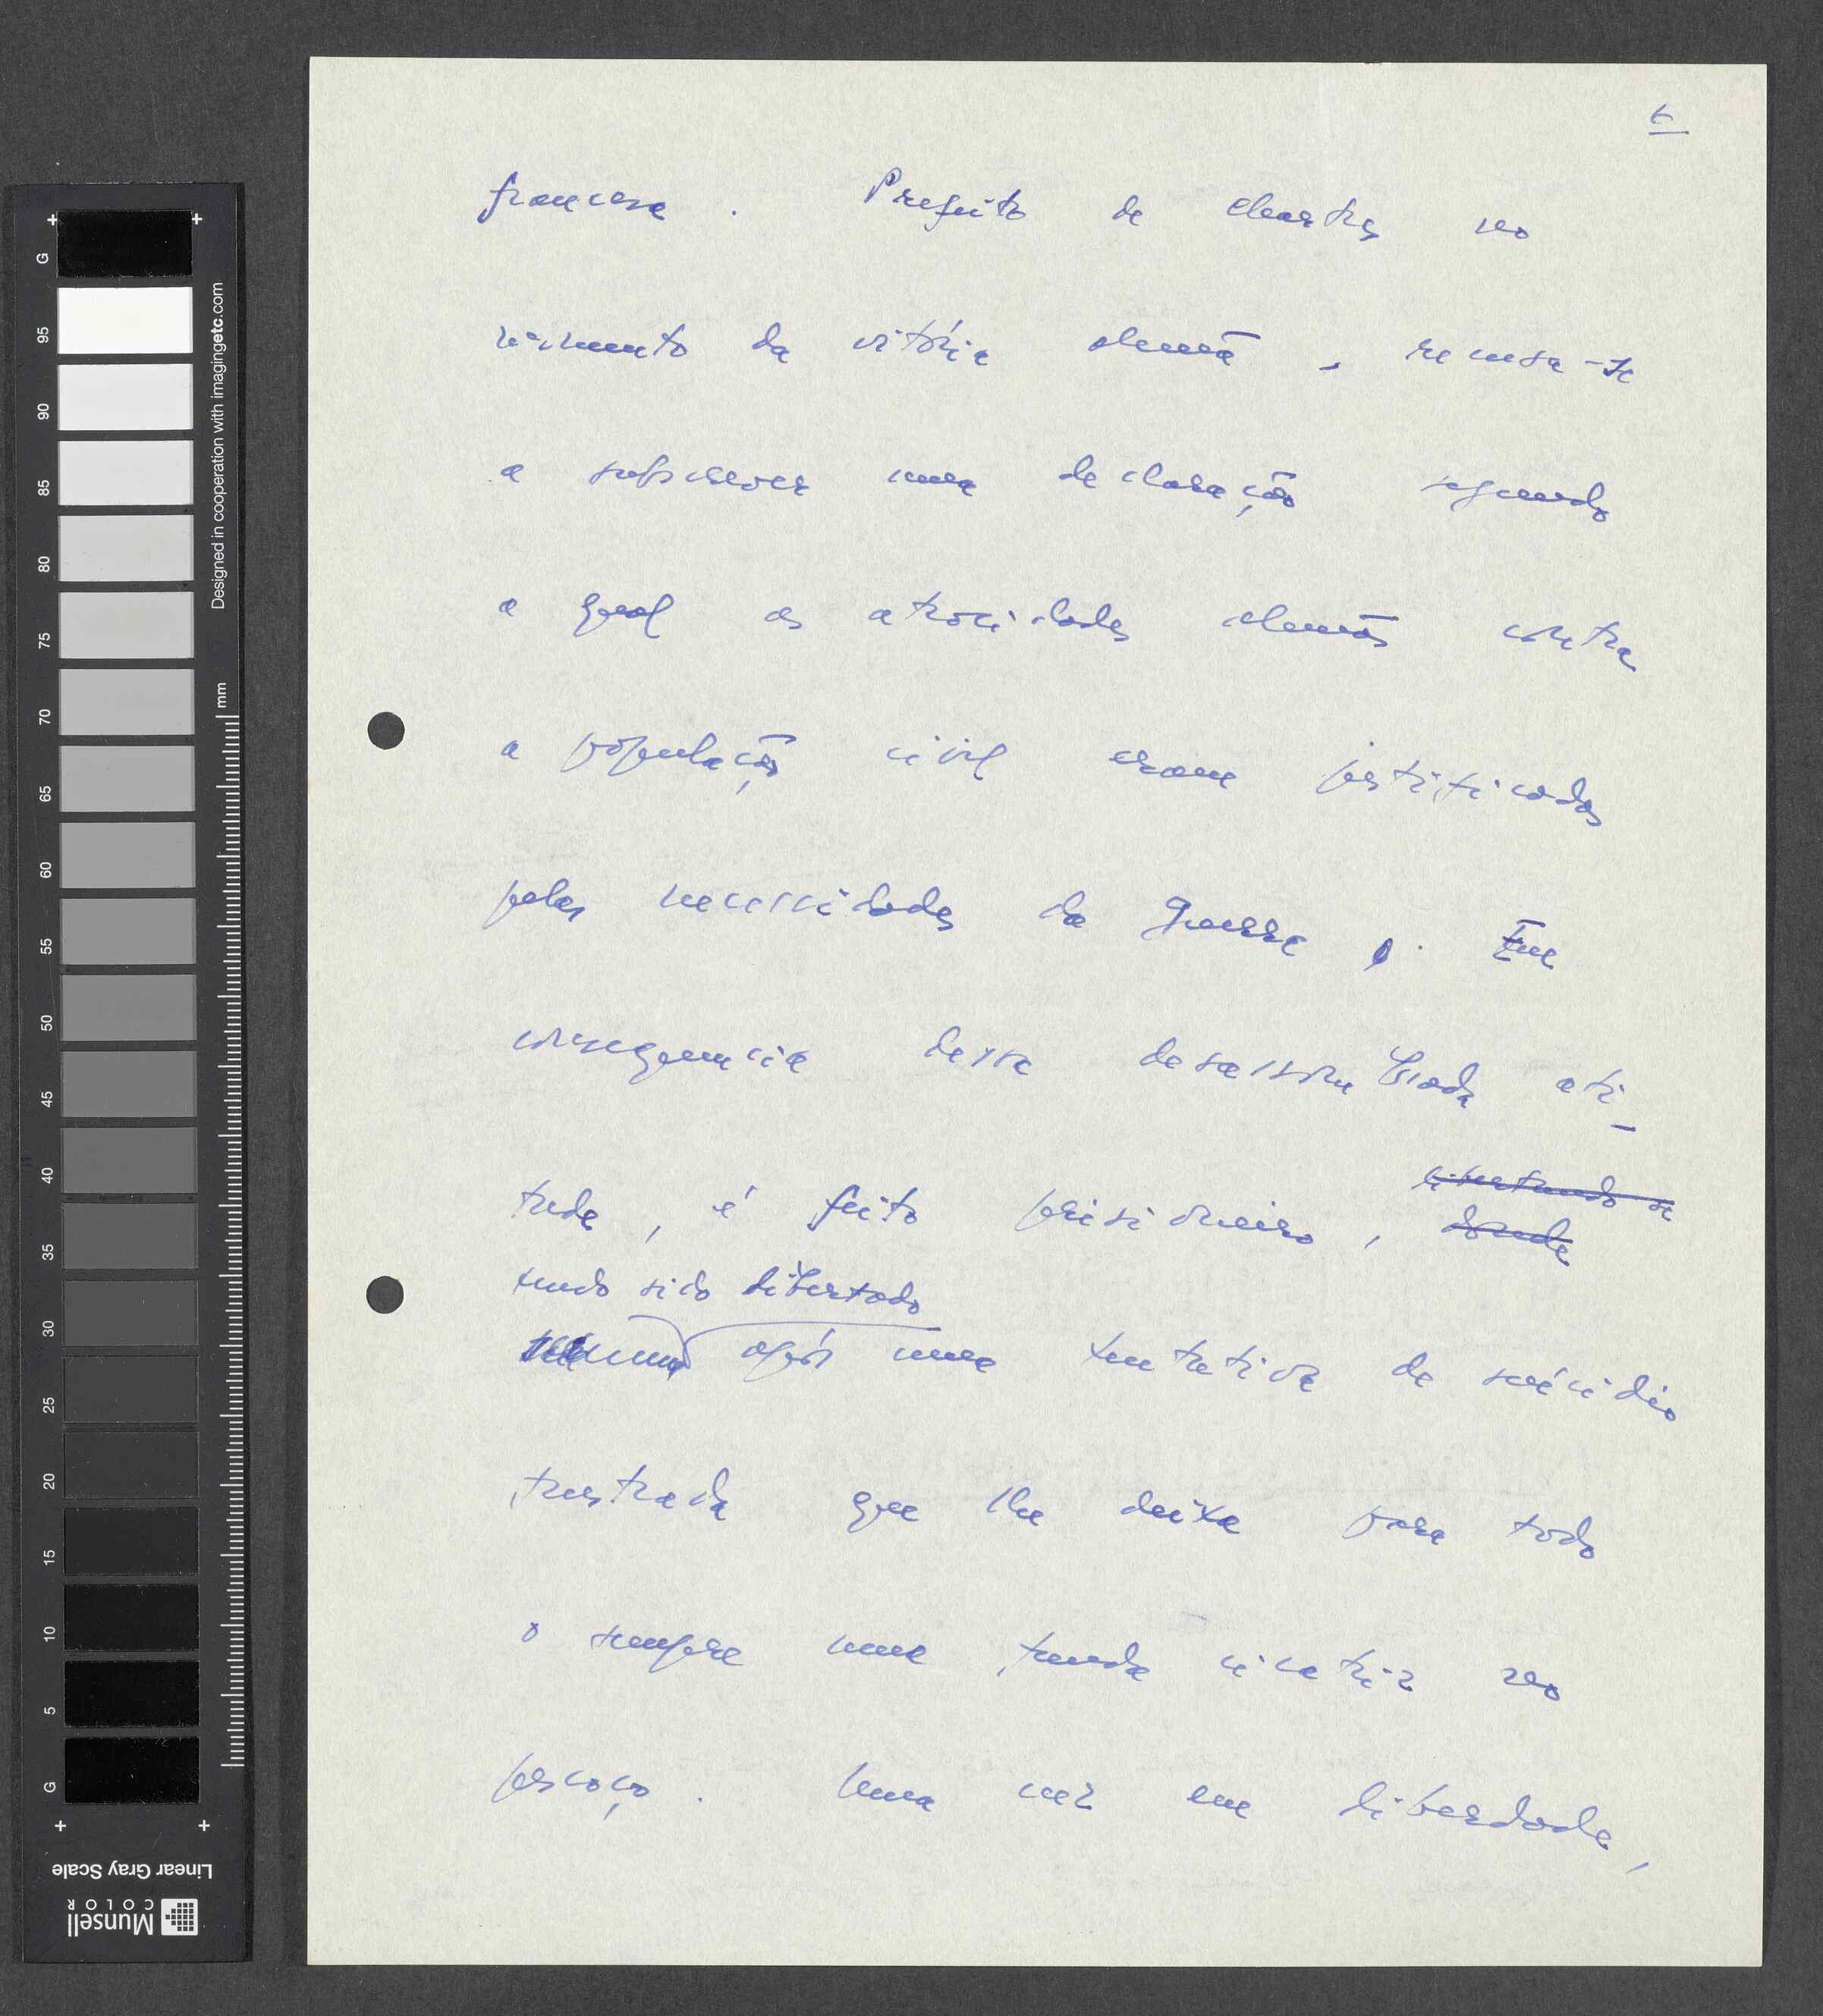 6
francesa. Prefeito de Chartres no
momento da vitória alemã, recusa-se
a subscrever uma declaração segundo
a qual as atrocidades alemãs contra
a população civil eram justificadas
pelas necessidades da guerra. Em
consequencia dessa desassombrada ati-
libertando-se
tude, é feito prisioneiro, donde
tendo sido libertado
após uma tentativa de suicídio
frustrada que lhe deixa para todo
o sempre uma funda cicatriz no
pescoço. Uma vez em liberdade,
G
95
90
85
80
75
70
65
60
55
50
45
40
35
30
25
20
15
10
5
G
mm
Designed in cooperation with imagingetc.com
Linear Gray Scale
Munsell
COLOR